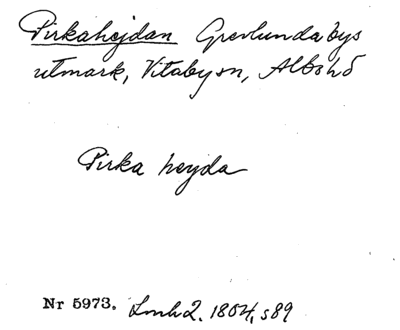 Pirkahejdan Grevlunda bys
utmark, Vitaby sn, Albo hd
Pirka heyda
Nr 5973. Lmh 2. 1804, s 89